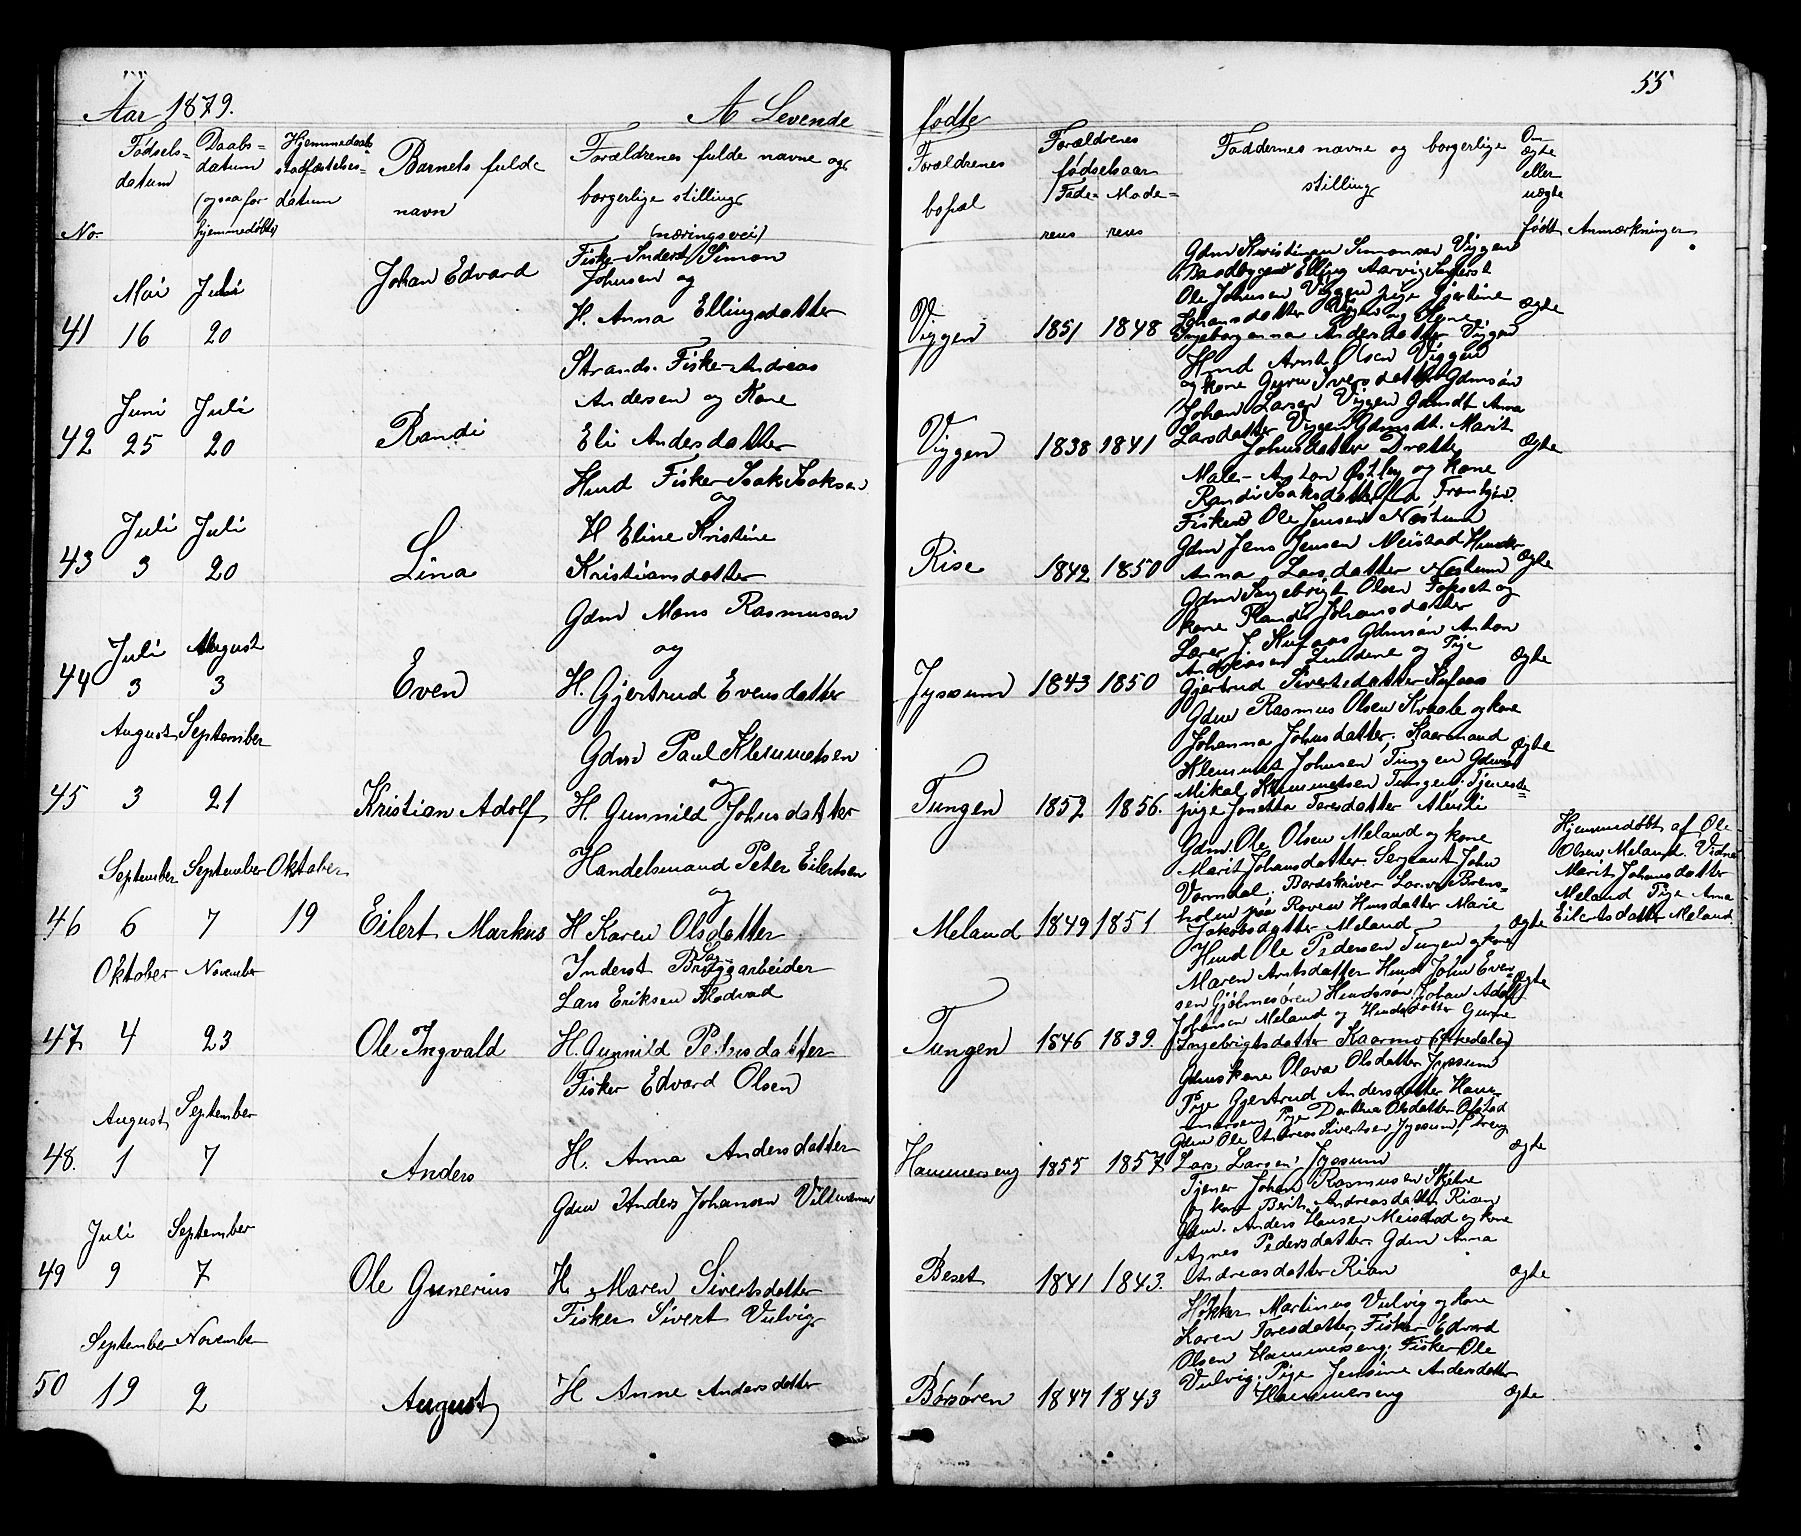 Aar 1879.
A Levende
fødte
55
No.
Fødsels-
datum
Daabs-
datum
(ogsaa for
hjemmedøbte)
Hjemmedaabs
stadfæstelses-
datum
Barnets fulde
navn
Forældrenes fulde navne og
borgerlige stilling
(næringsvei)
Forældrenes
bopæl
Forældrenes
fødselsaar
Fade- Mode-
rens rens
Faddernes navne og borgerlige
stilling
Om
ægte
eller
uægte
født
Anmærkninger
41
Mai
16
Juli
20
Johan Edvard
Fisker Inderst Simon
Johnsen og
H. Anna Ellingsdatter
Viggen
1851 1848
Gdm Kristian Simonsen Viggen
Baadbygger Elling Aarvig Inderst
Ole Johnsen Viggen pige Gjertine
Johansdatter Viggen og Kone
Ingeborganna Andersdatter Viggen
Ægte
42
Juni
25
Juli
20
Randi
Strands. Fisker Andreas
Andersen og Kone
Eli Andersdatter
Viggen
1838 1841
Hmd Arnt Olsen Viggen
og kone Guru Iversdatter Gdmsøn
Johan Larsen Viggen Gdmdt. Anna
Larsdatter Viggen Gdmdt. Marit
Johnsdatter Drøtte
Ægte
43
Juli
3
Juli
20
Lina
Hmd Fisker Isak Isaksen
og
H Eline Kristine
Kristiansdatter
Rise
1842 1850
Maler Anton Østby og Kone
Randi Isaksdatter Ila Tronhjem.
Fisker Ole Jensen Næstum
Gdm Jens Jensen Meistad
Anna Larsdatter Næstum
Ægte
44
Juli
3
August
3
Even
Gdm Mons Rasmusen
og
H. Gjertrud Evensdatter
Jyssum
1843 1850
Gdm Ingebrigt Olsen Fokset og
kone Randi Johansdatter
Lærer J. Kufaas Gdmsøn Anton
Andreasen Lindene og Pige
Gjertrud Sivertsdatter Kufaas
Ægte
45
August
3
September
21
Kristian Adolf
Gdm Paul Klemmetsen
og
H. Gunnild Johnsdatter
Tungen
1852 1856.
Gdm Rasmus Olsen Kvaale og kone
Johanna Johnsdatter. Kaarmand
Klemmet Johnsen Tungen Gdmsøn
Mikal Klemmetsen Tungen. Tjeneste-
pige Jonetta Toresdatter
Ægte
46
September
6
September
7
Oktober
19
Eilert Markus
Handelsmand Peter Eilertsen
og
H Karen Olsdatter
Meland
1849 1851
Gdm. Ole Olsen Meland og kone
Marit Johansdatter. Sergeant John
Værndal. Bordskriver Lars Brens-
holm paa Roven Hmsdatter Marie
Jakobsdatter Meland
Ægte
Hjemmedøbt af Ole
Olsen Meland. Vidner
Marit Johansdatter
Meland Pige Anna
Eilertsdatter Meland
47
Oktober
4
November
23
Ole Ingvald
Inderst Brugsarbeider
Lars Eriksen Flodvad
H. Gunnild Petersdatter
Tungen
1846 1839.
Hmd Ole Pedersen Tungen og kone
Maren Arntsdatter Hmd John Even-
sen Gjølmesøren Hmdssøn Johan Adolf
Johansen Meland og Hmdsdatter Gurine
Ingebrigtsdatter Kaarmo (Orkedalen)
Ægte
48.
August
1
September
7
Anders
Fisker Edvard Olsen
H. Anna Andersdatter
Hammerseng
1855 1857
Gdmskone Olava Olsdatter Jyssum
Pige Gjertrud Andersdatter Ham-
merseng Pige Dorthea Olsdatter Ofstad
Gdm Ole Andreas Sivertsen Jyssum, Dreng
Lars Larsen, Jyssum
Ægte
49
Juli
9
September
7
Ole Gunerius
Gdm Anders Johansen
H. Maren Sivertsdatter
Beset
1841 1843.
Tjener Johan Rasmusen
og kone Berit Andreasdatter Rian
Gdm. Anders Hansen Meistad og kone
Agnes Pedersdatter. Gdm Anna
Andreasdatter Rian
Ægte
50
September
19
November
2
August
Fisker Sivert Vulvig
H Anne Andersdatter
Børsøren
1847 1843
Høkker Martinus Vulvig og kone
Karen Toresdatter, Fisker Edvard
Olsen Hammerseng. Fisker Ole
Vulvig, Pige Jensine Andersdatter
Hammerseng
Ægte